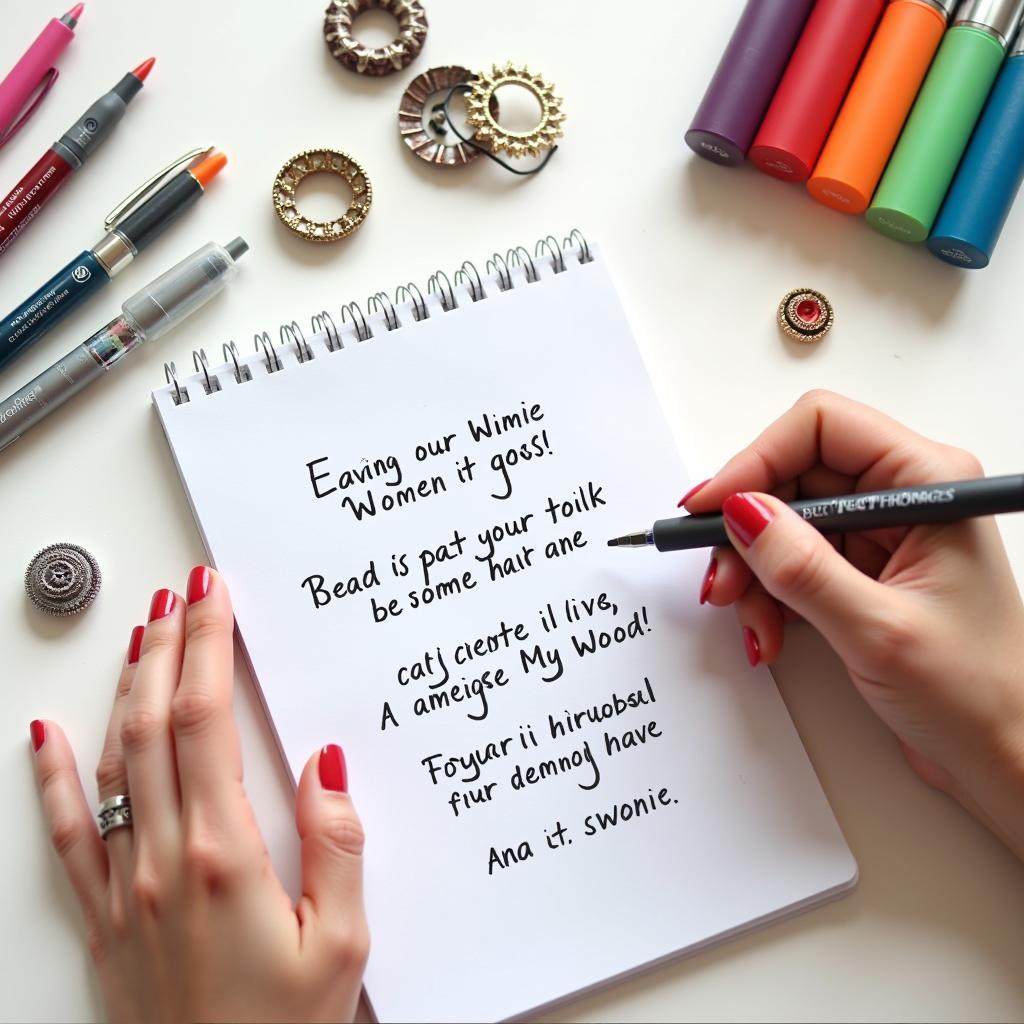 Eaving our Wimie
Women it goss!
Bead is pat your toilk
be some hait ane
catj cierte il live,
A ameigse My Wood!
Foyuar ii hiruobsul
fiur demnoj have
Ana it. swonie.